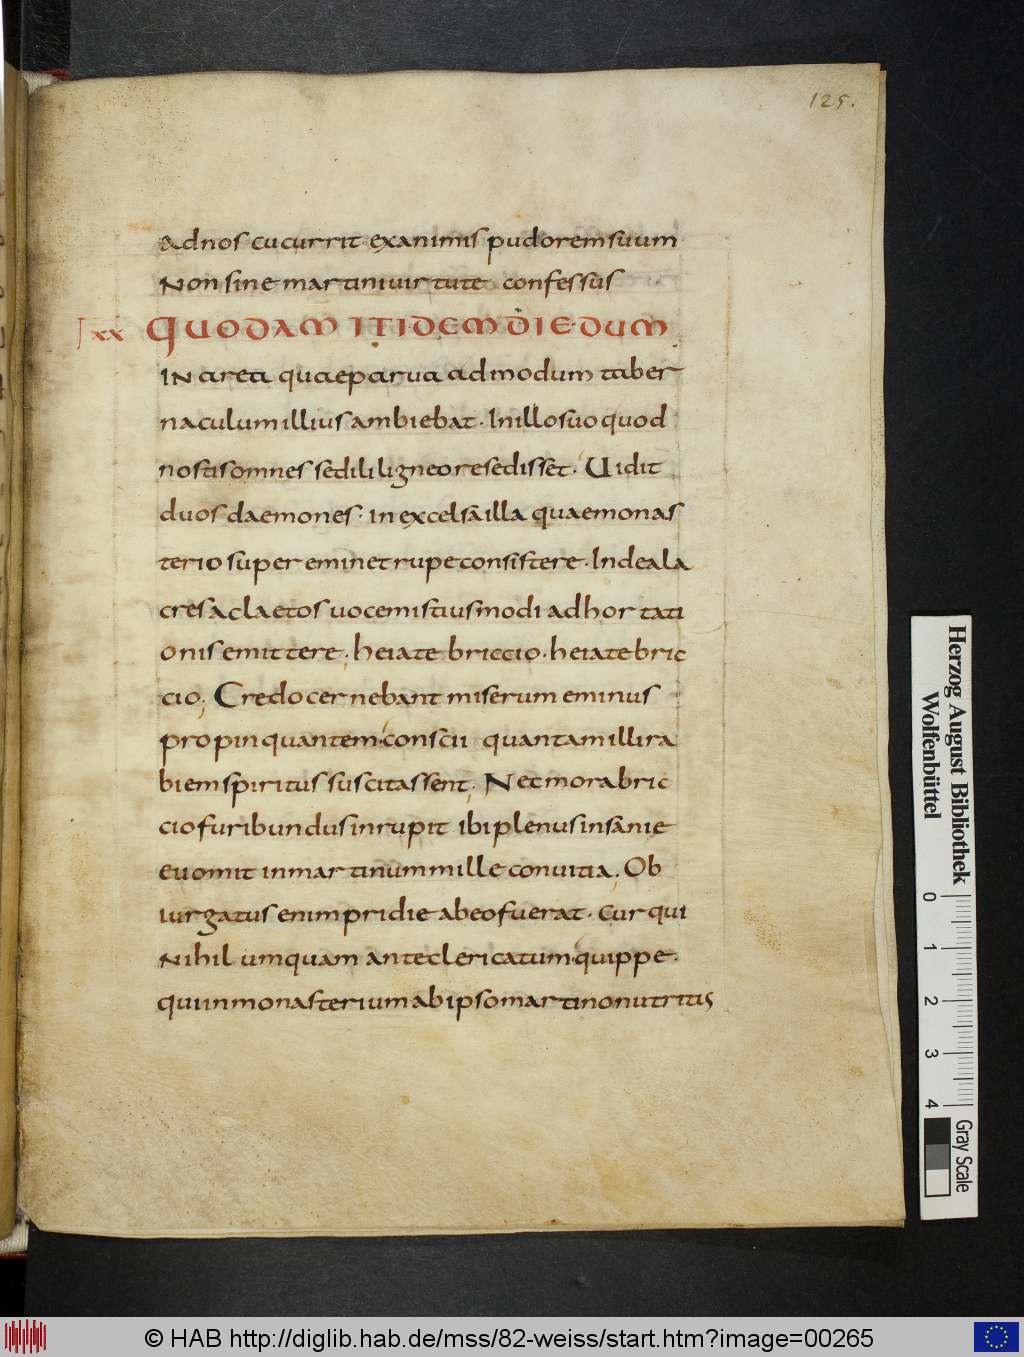 125.
adnos cucurrit exanimis pudorem suum
Non sine martini uirtute confessus
xx QUODAM ITIDEM DIE·DUM
IN area quae parua admodum taber
naculum illius ambiebat· In illo suo quod
nostis omnes sedili ligneo resedisset· Uidit
duos daemones· in excelsa illa quae monas
terio super eminet rupe consistere· Inde ala
cres ac laetos uocem istiusmodi adhortati
onis emittere· heiate briccio· heiate bric
cio; Credo cernebant miserum eminus
propinquantem· conscii quantam illi ra
biem spiritus suscitassent; Nec mora bric
cio furibundus inrupit ibi plenus insanie
euomit in martinum mille conuitia; Ob
iurgatus enim pridie ab eo fuerat· cur qui
Nihil umquam ante clericatum· quippe·
qui in monasterium ab ipso martino nutritis
Herzog August Bibliothek
Wolfenbüttel
0 1 2 3 4
Gray Scale
© HAB http://diglib.hab.de/mss/82-weiss/start.htm?image=00265